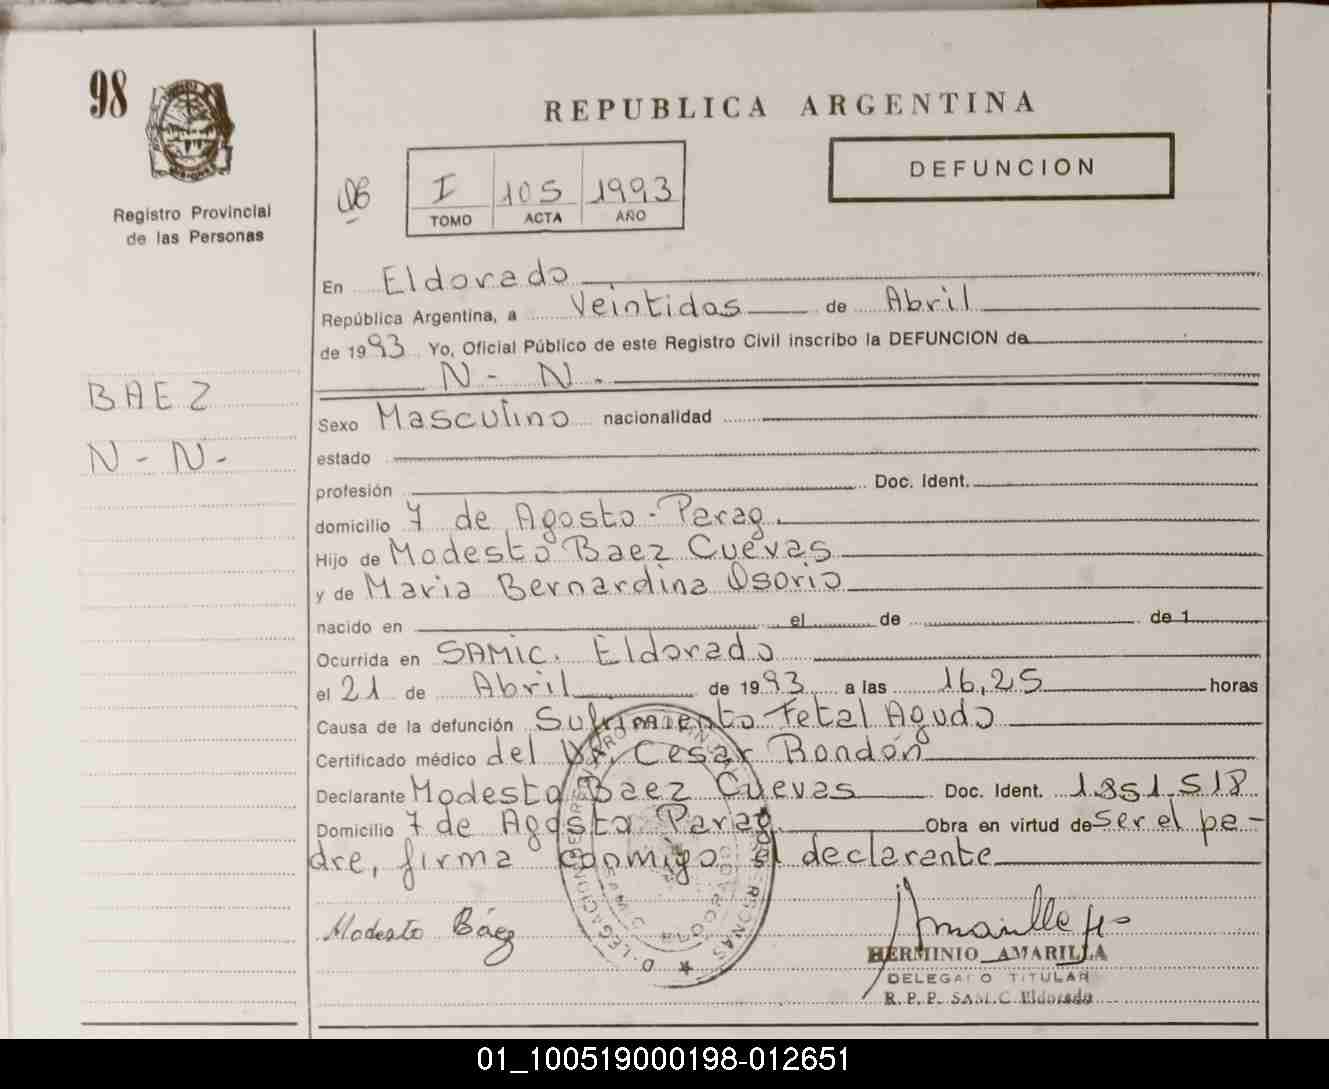 98
REPUBLICA ARGENTINA
DEFUNCION
I 105 1993
TOMO ACTA AÑO
Registro Provincial
de las Personas
En Eldorado
República Argentina, a Veintidos de Abril
de 1993 Yo, Oficial Público de este Registro Civil inscribo la DEFUNCION de
N - N.
BAEZ
N - N -
Sexo Masculino nacionalidad
estado
profesión Doc. Ident.
domicilio 7 de Agosto - Parag.
Hijo de Modesto Baez Cuevas
y de Maria Bernardina Osorio
nacido en el de de 1
Ocurrida en SAMIC. Eldorado
el 21 de Abril de 1993 a las 16,25 horas
Causa de la defunción Sufrimiento Fetal Agudo
Certificado médico del Dr. Cesar Rondón
Declarante Modesto Baez Cuevas Doc. Ident. 1.851.518
Domicilio 7 de Agosto Parag. Obra en virtud de ser el pa-
dre, firma conmigo el declarante
Modesto Báez
HERMINIO AMARILLA
DELEGADO TITULAR
R. P. P. SAMIC Eldorado
01_100519000198-012651